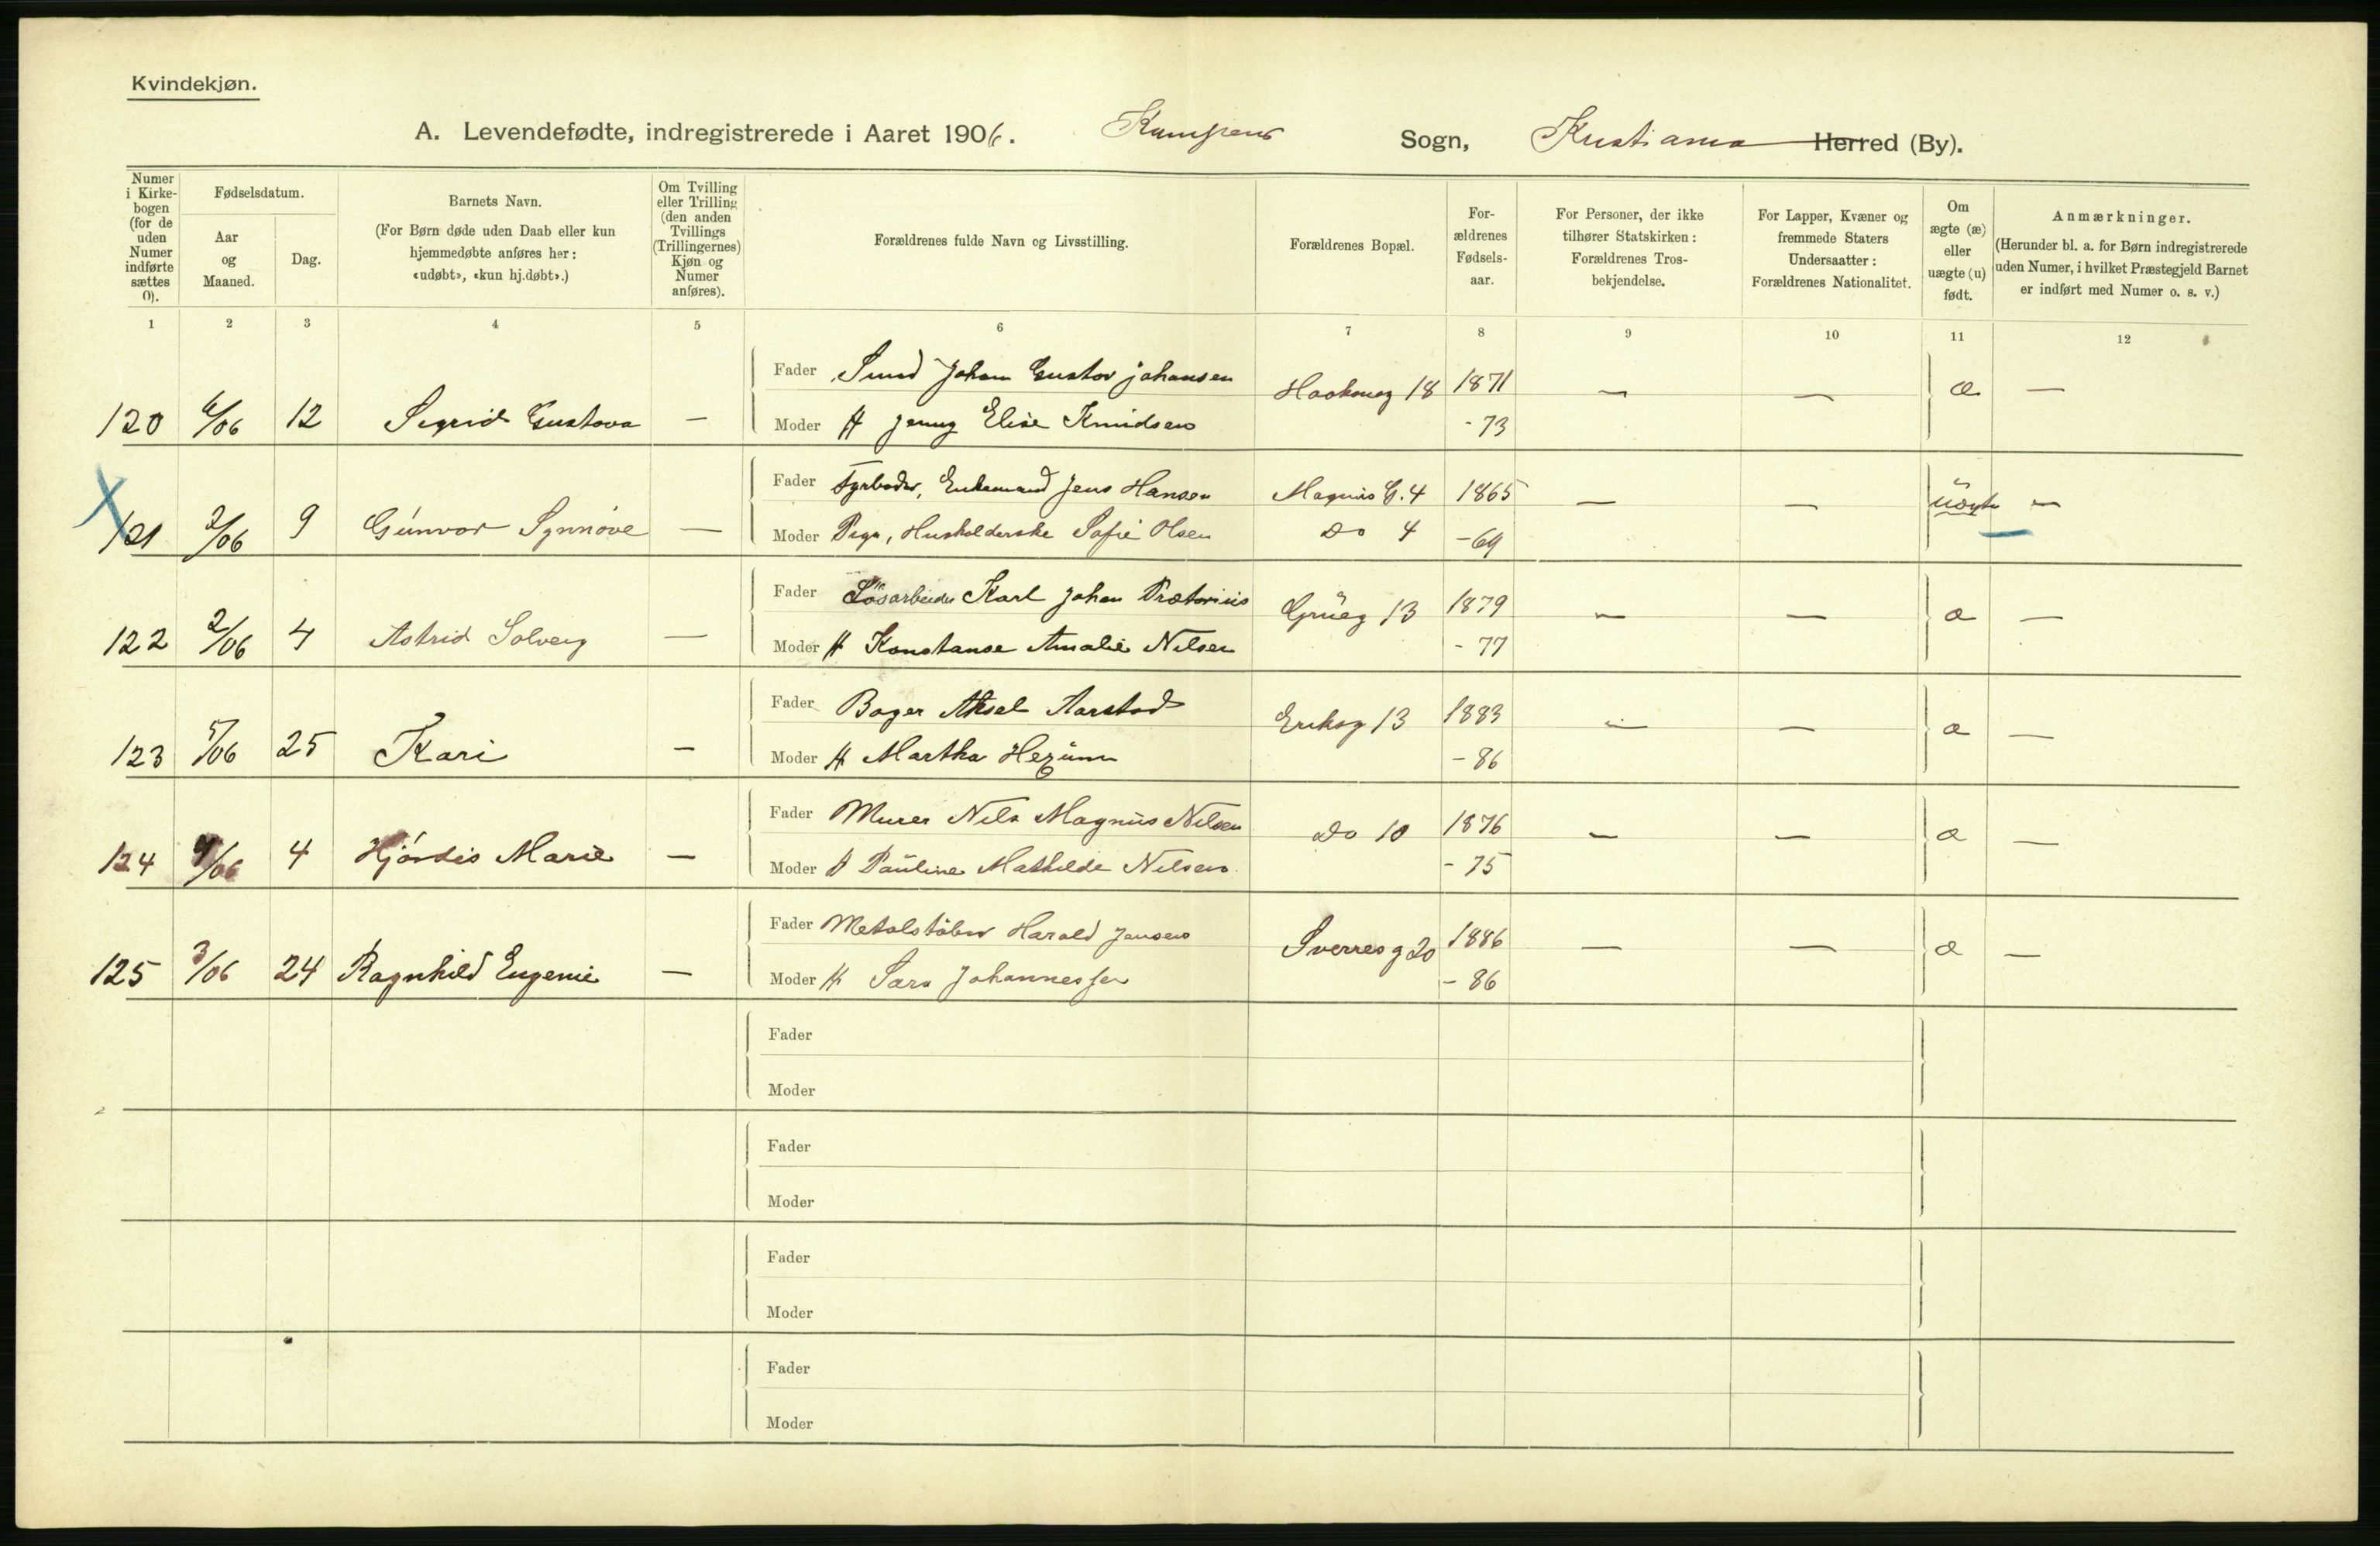 Kvindekjøn.
A. Levendefødte, indregistrerede i Aaret 1906. Kampens Sogn, Kristiania Herred (By).
Numer i Kirkebogen (for de uden Numer indførte sættes 0).
Fødselsdatum.
Aar og Maaned.
Dag.
Barnets Navn.
(For Børn døde uden Daab eller kun hjemmedøbte anføres her: «udøbt», «kun hj.døbt».)
Om Tvilling eller Trilling (den anden Tvillings (Trillingernes) Kjøn og Numer anføres).
Forældrenes fulde Navn og Livsstilling.
Forældrenes Bopæl.
Forældrenes Fødselsaar.
For Personer, der ikke tilhører Statskirken: Forældrenes Trosbekjendelse.
For Lapper, Kvæner og fremmede Staters Undersaatter: Forældrenes Nationalitet.
Om ægte (æ) eller uægte (u) født.
Anmærkninger.
(Herunder bl. a. for Børn indregistrerede uden Numer, i hvilket Præstegjeld Barnet er indført med Numer o. s. v.)
1 2 3 4 5 6 7 8 9 10 11 12
Fader Smed Johan Gustav Johansen Haakonsg 18 1871 — — æ —
120 6/06 12 Sigrid Gustava — Moder H Jenny Elise Knudsen - 73
Fader Fyrbøder, Enkemand Jens Hansen Magnus G. 4 1865 — — uægte —
121 2/06 9 Gunvor Synnøve — Moder Pige, Husholderske Sofie Olsen Do 4 - 69
Fader Løsarbeider Karl Johan Prætorius Grüeg 13 1879 — — æ —
122 2/06 4 Astrid Solveig — Moder H Konstanse Amalie Nilsen - 77
Fader Bager Aksel Aarstad Eriksg 13 1883 — — æ —
123 5/06 25 Kari — Moder H Martha - 86
Fader Murer Nils Magnus Nilsen Do 10 1876 — — æ —
124 4/06 4 Hjørdis Marie — Moder H Pauline Mathilde Nilsen - 75
Fader Metalstøber Harald Jensen Sverres g 20 1886 — — æ —
125 3/06 24 Ragnhild Eugenie — Moder H Sara Johannessen - 86
Fader
Moder
Fader
Moder
Fader
Moder
Fader
Moder